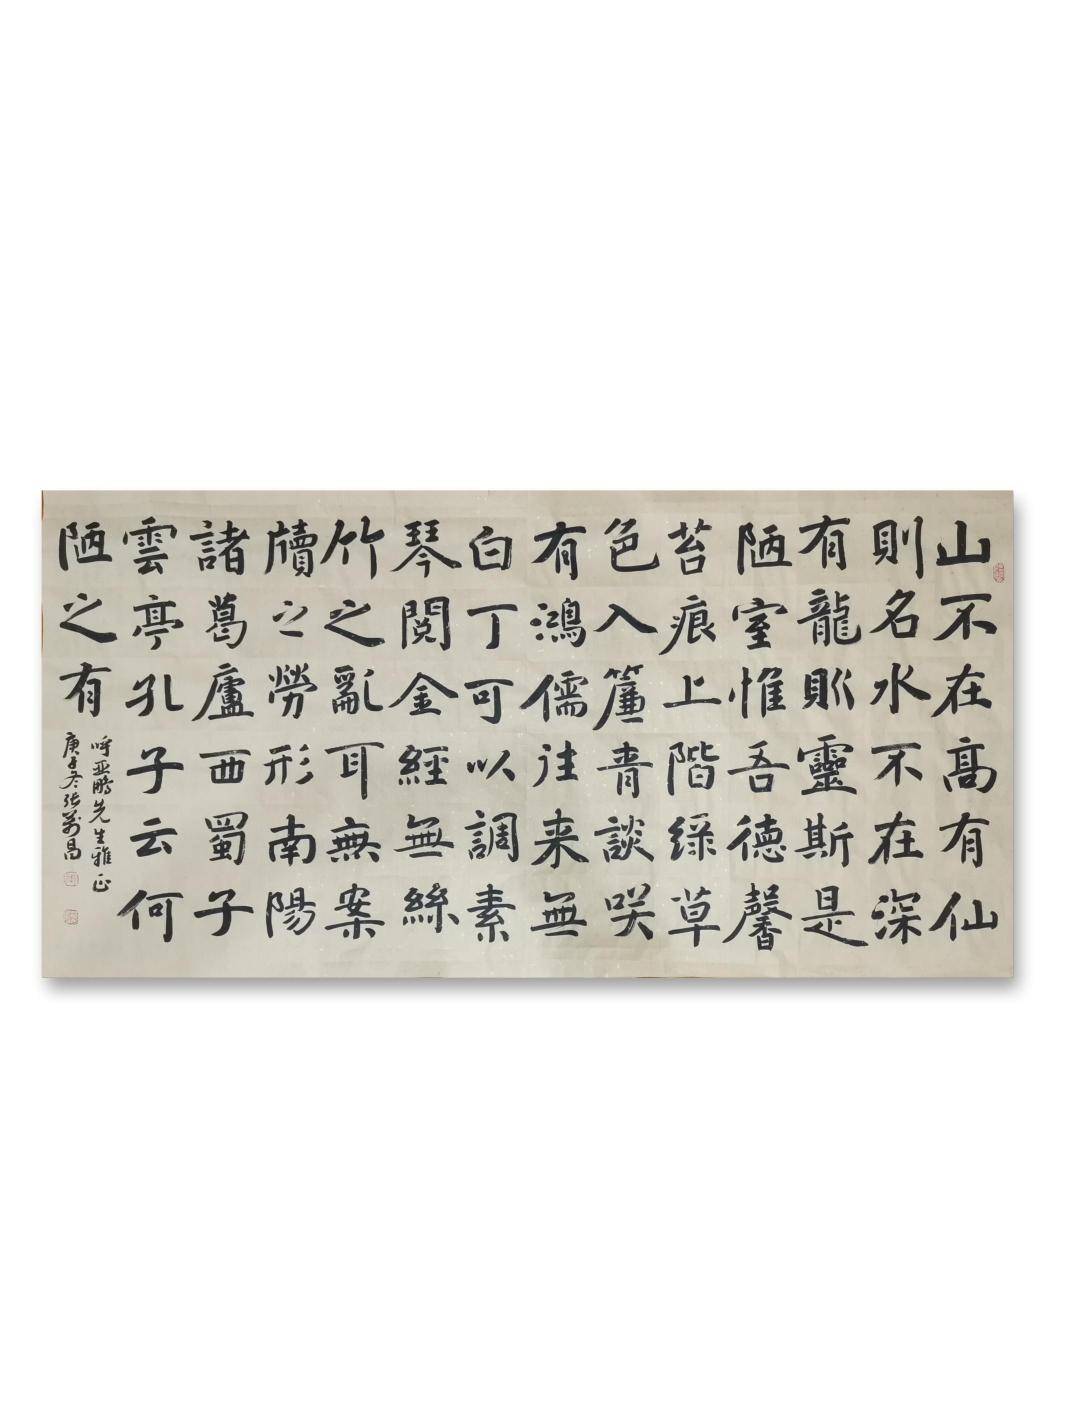 山不在髙有仙
則名水不在深
有龍則靈斯是
陋室惟吾德馨
苔痕上階綠草
色入簾青談咲
有鴻儒往来無
白丁可以調素
琴閱金經無絲
竹之亂耳無案
牘之勞形南陽
諸葛廬西蜀子
雲亭孔子云何
陋之有
呼亚鵬先生雅正
庚子冬张萬昌